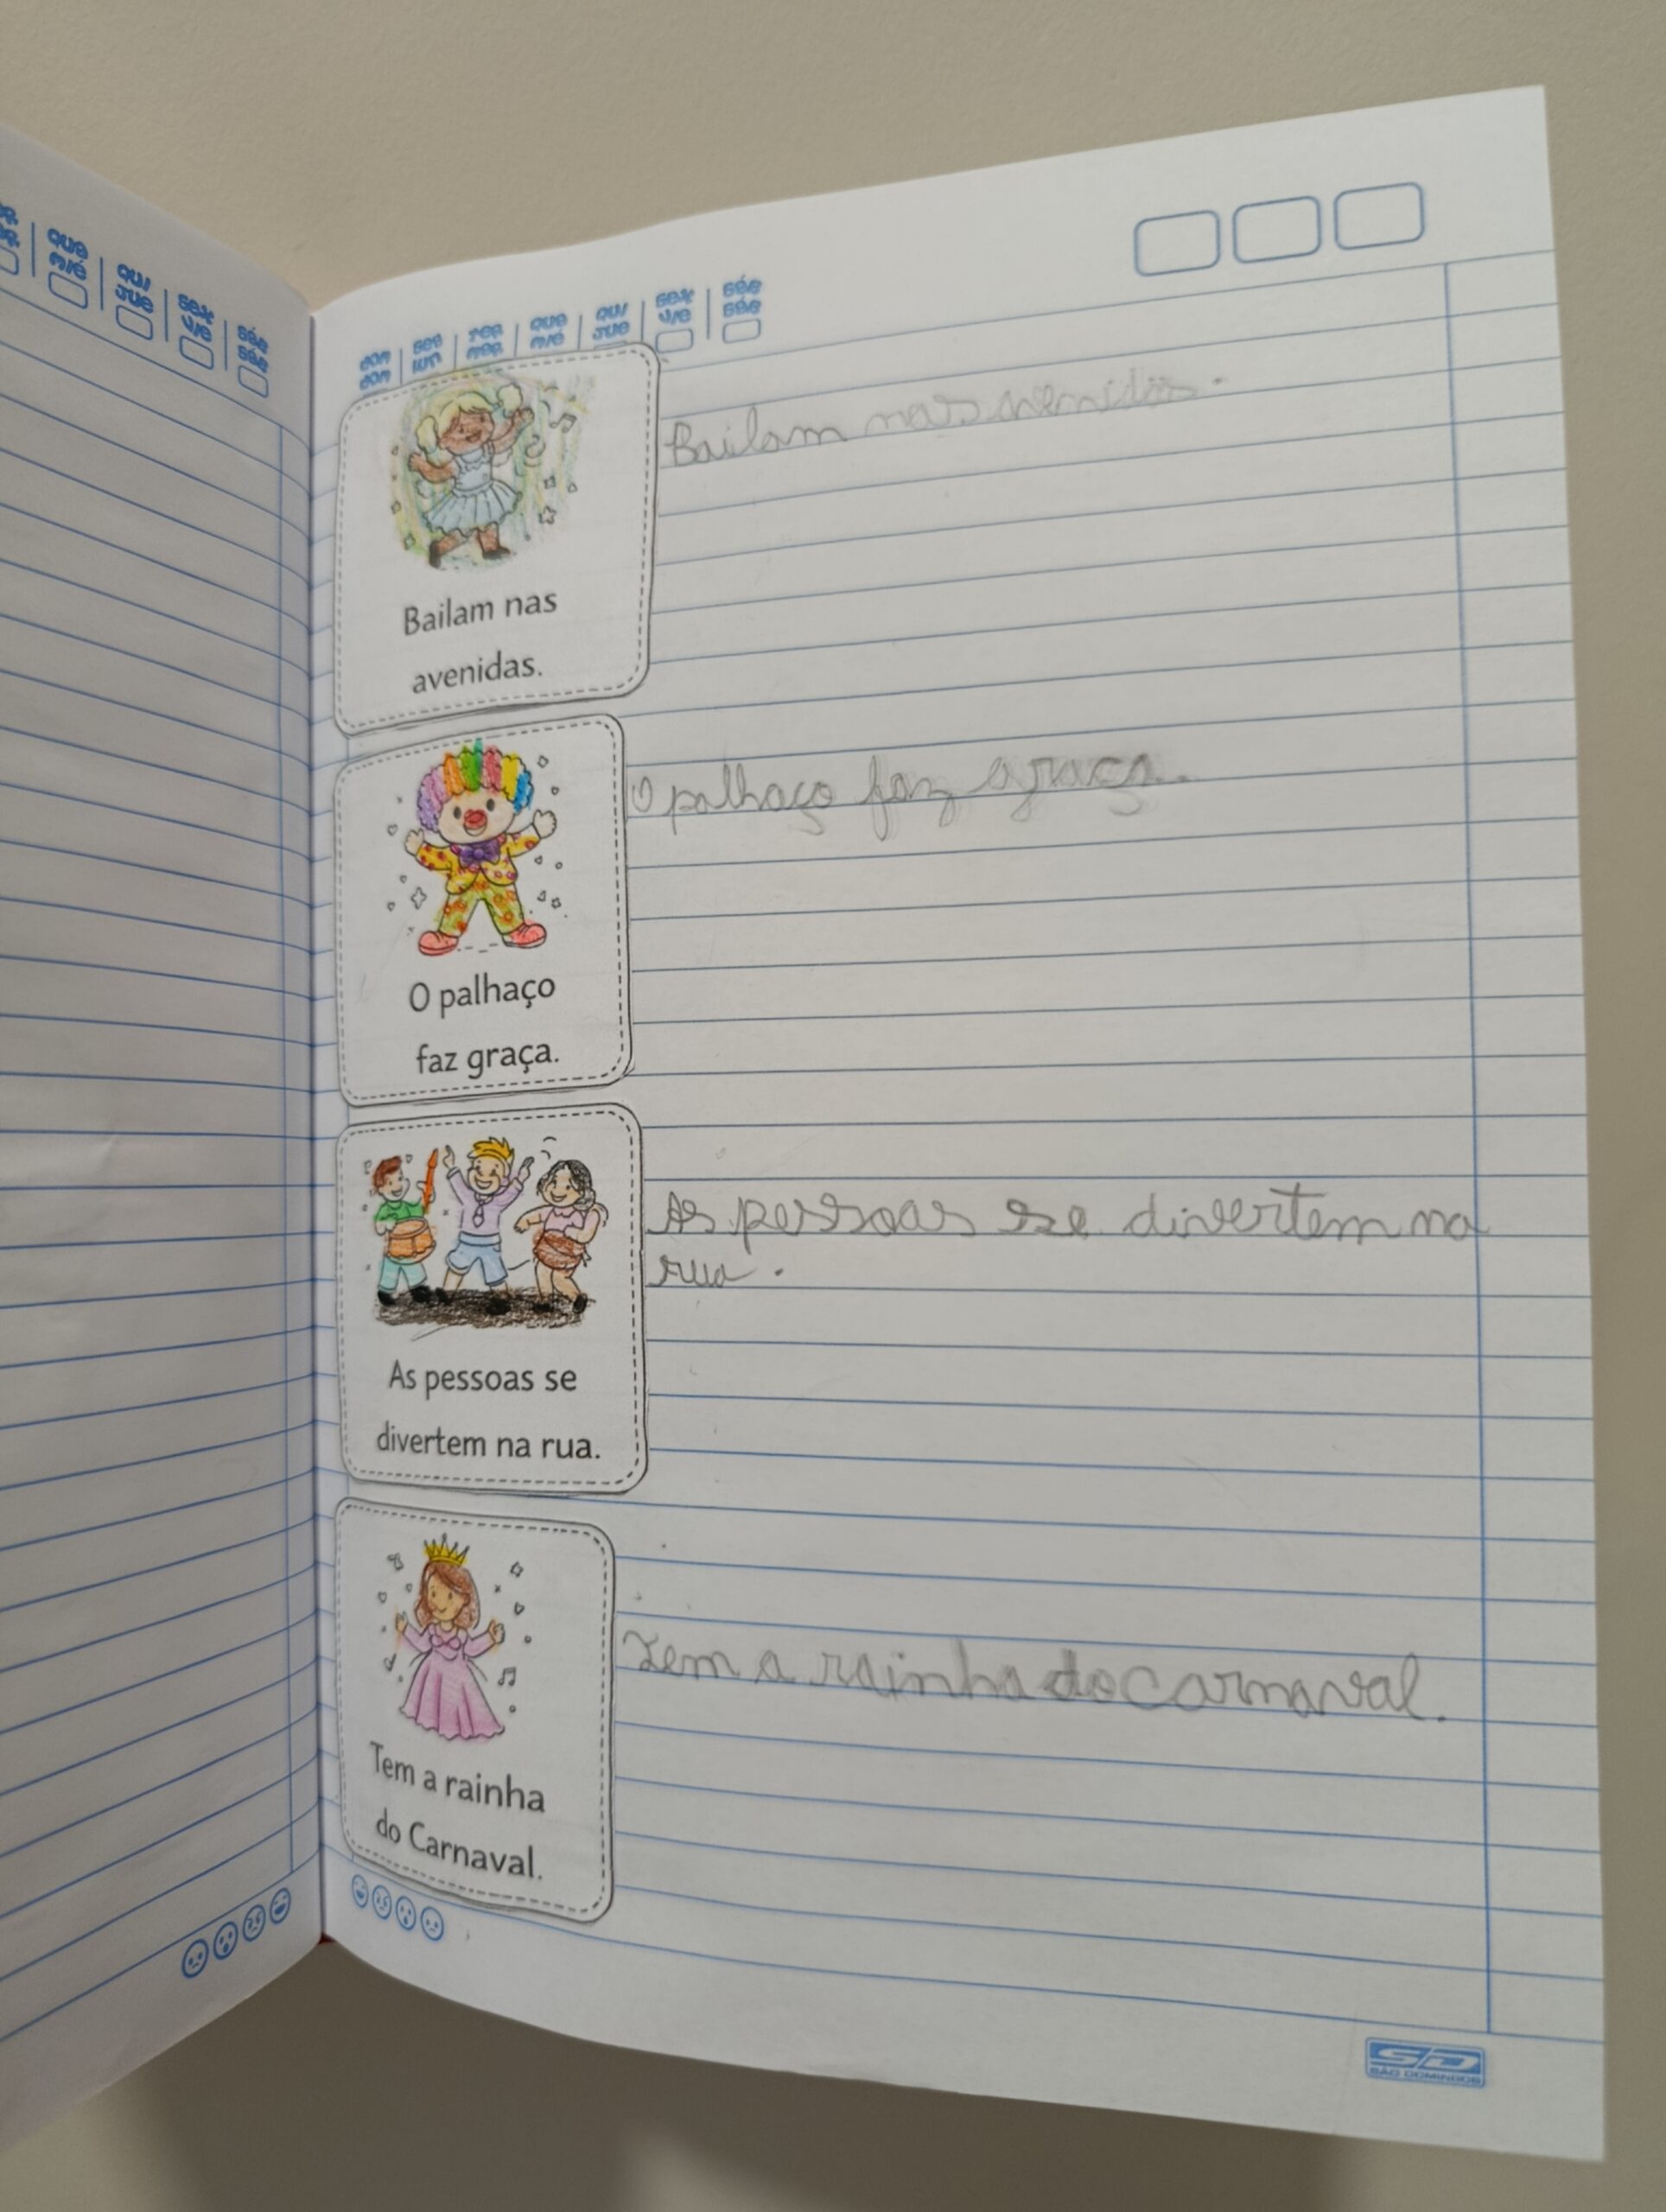 que
mié
qui
jue
sex
vie
sáb
sáb
dom seg ter qua qui sex sáb
dom lun mar mié jue vie sáb
Bailam nas avenidas.
Bailam nas
avenidas.
O palhaço faz graça.
O palhaço
faz graça.
As pessoas se divertem na
rua.
As pessoas se
divertem na rua.
Tem a rainha do Carnaval.
Tem a rainha
do Carnaval.
SD
SÃO DOMINGOS